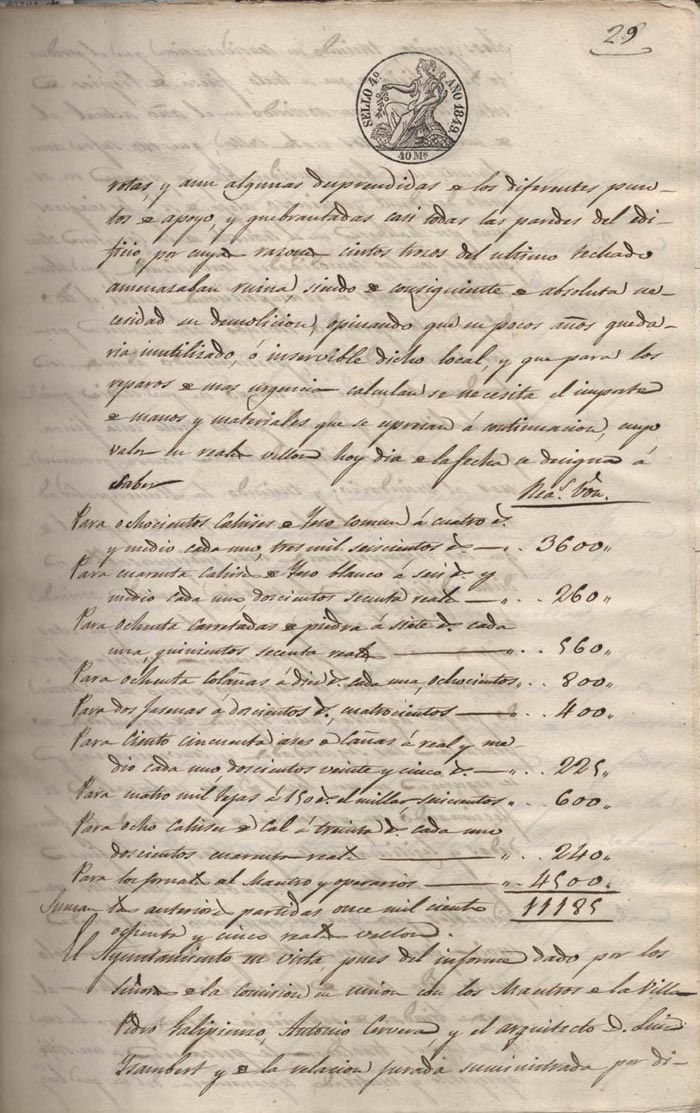 29
SELLO 4º AÑO 1849.
40 Mˢ
rotas, y aun algunas desprendidas de los diferentes pun-
tos de apoyo, y quebrantadas casi todas las paredes del edi-
ficio, por cuya razon ciertos trozos del ultimo techado
amenazaban ruina, siendo de consiguiente de absoluta ne-
cesidad su demolicion, opinando que en pocos años queda-
ria inutilizado, ó inservible dicho local, y que para los
reparos de mas urgencia calculan se necesita el importe
de manos y materiales que se expresan á continuacion, cuyo
valor en reales vellon hoy dia de la fecha se designa á
saber
Reaˢ. Von.
Para ochocientos Cahises de Yeso comun á cuatro r.ˢ
y medio cada uno, tres mil seiscientos r.ˢ — „ . 3600 „
Para cuarenta Cahises de Yeso blanco á seis r.ˢ y
medio cada uno, doscientos sesenta reales — „ . . 260 „
Para ochenta carretadas de piedra á siete r.ˢ cada
una, quinientos secenta reales — „ . . 560 „
Para ochenta colañas á diez r.ˢ cada una, ochocientos „ . . 800 „
Para dos jasenas á doscientos r.ˢ, cuatrocientos — „ . . 400 „
Para Ciento cincuenta ases de Cañas á real y me-
dio cada uno, doscientos veinte y cinco r.ˢ — „ . . 225 „
Para cuatro mil tejas á 150 r.ˢ el millar seiscientos „ . 600 „
Para ocho Cahises de Cal á treinta r.ˢ cada uno
doscientos cuarenta reales — „ . . 240 „
Para los jornales al Maestro y operarios — „ . 4500 „
Suman las anteriores partidas once mil ciento 11185
ochenta y cinco reales vellon.
El Ayuntamiento en vista pues del informe dado por los
señores de la comision en union con los Maestros de la Villa
Pedro Galipienso, Antonio Cervera y el arquitecto D. Luis
Isambert y de la relacion jurada suministrada por di-